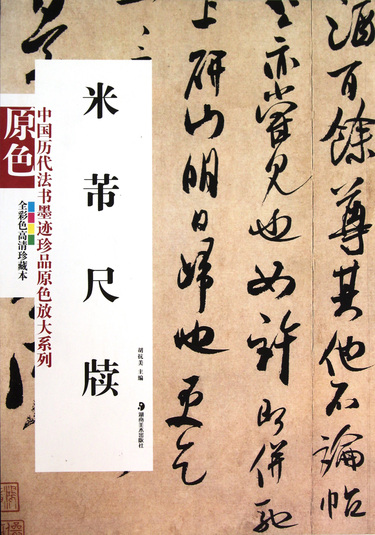 百餘尊其他不論帖
亦不嘗見也如許即併馳
上研山明日歸也更乞
米芾尺牍
胡抗美 主编
湖南美术出版社
原色
中国历代法书墨迹珍品原色放大系列
全彩色高清珍藏本